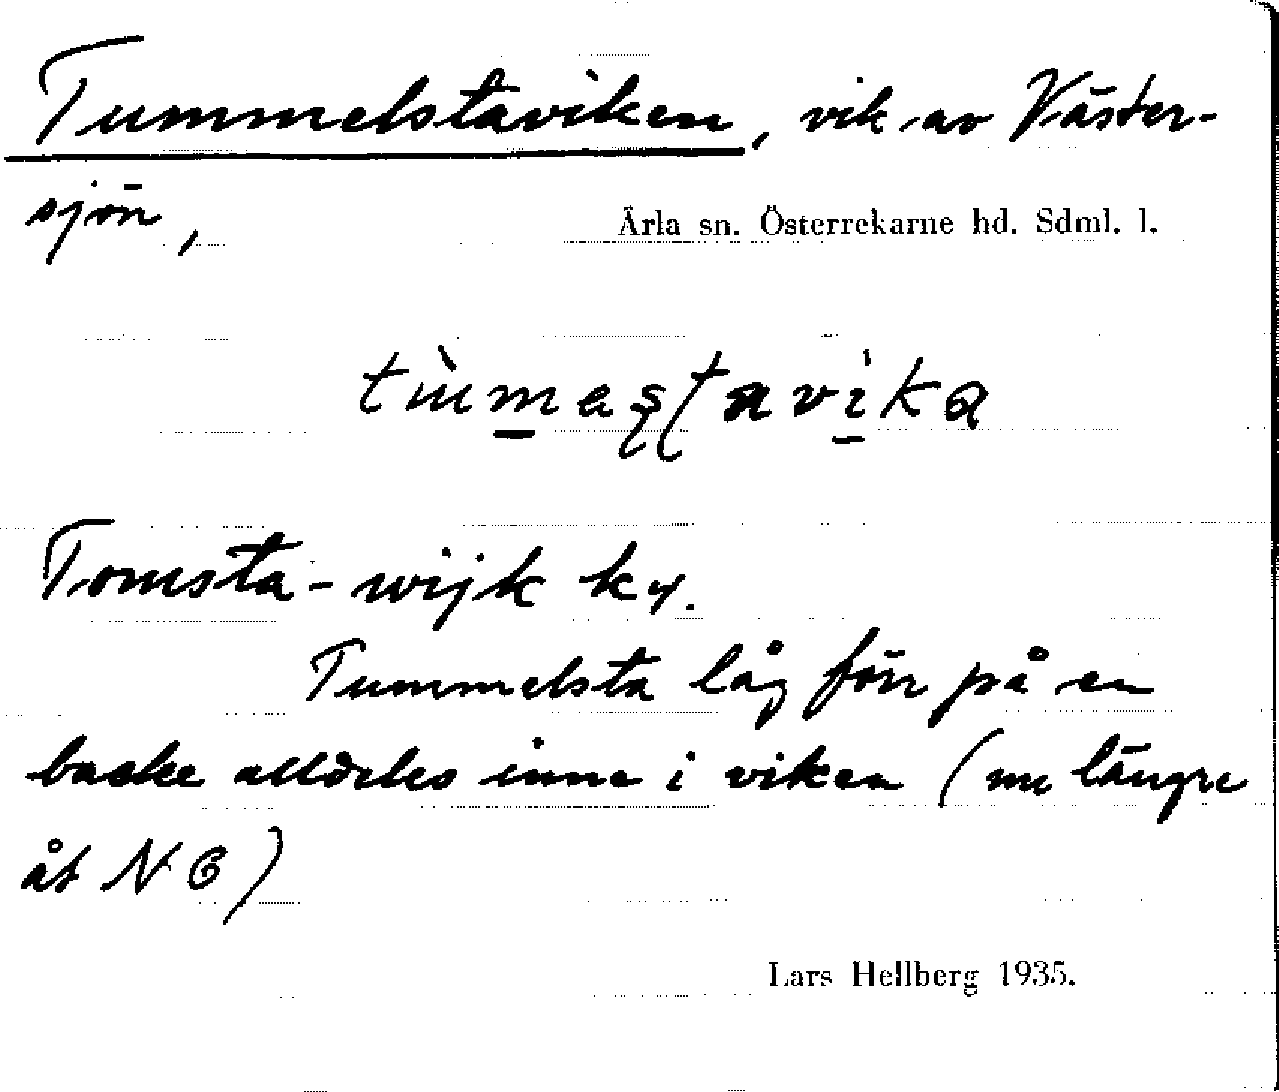 Tummelstaviken, vik av Väster-
sjön,
Ärla sn. Österrekarne hd. Sdml. l.
Tomsta-wijk ky.
Tummelsta låg förr på en
backe alldeles inne i viken (nu längre
åt NO)
Lars Hellberg 1935.